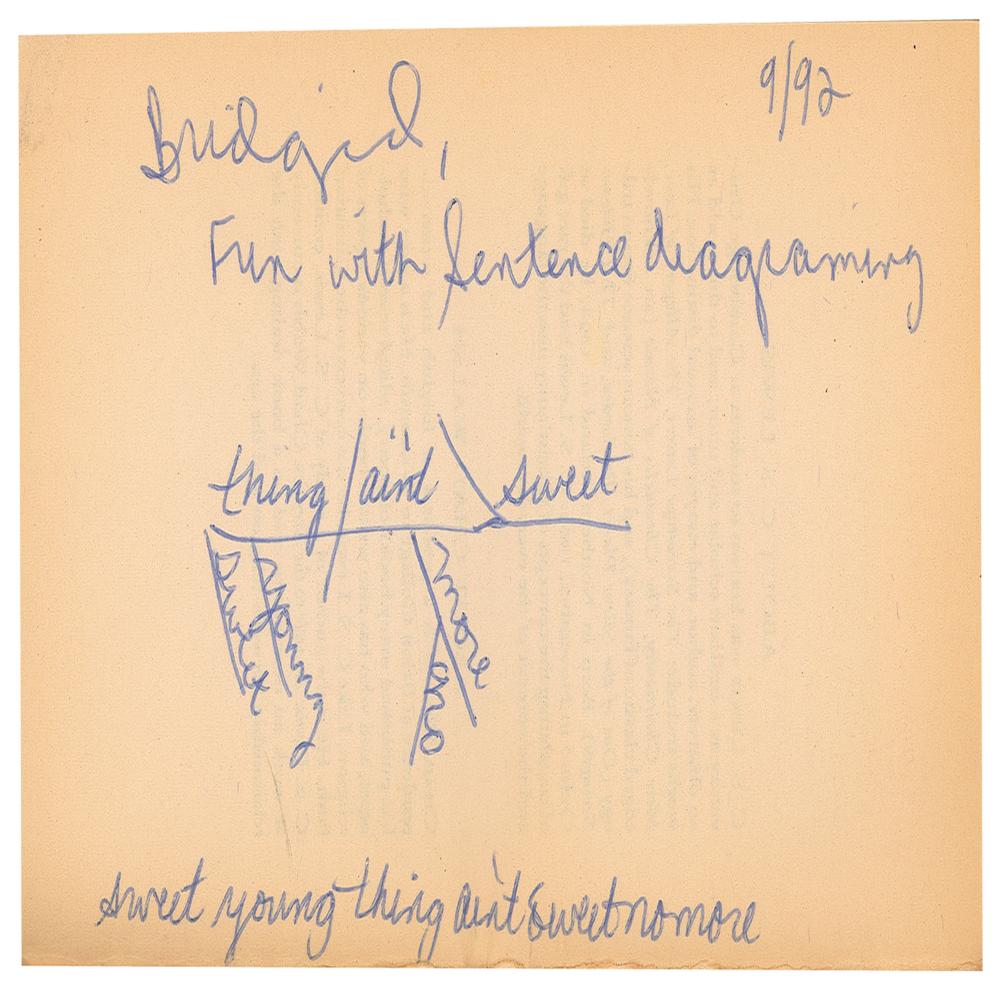 9/92
Bridgid,
Fun with Sentence diagraming
thing / ain't \ sweet
sweet young more no
sweet young thing ain't sweet no more